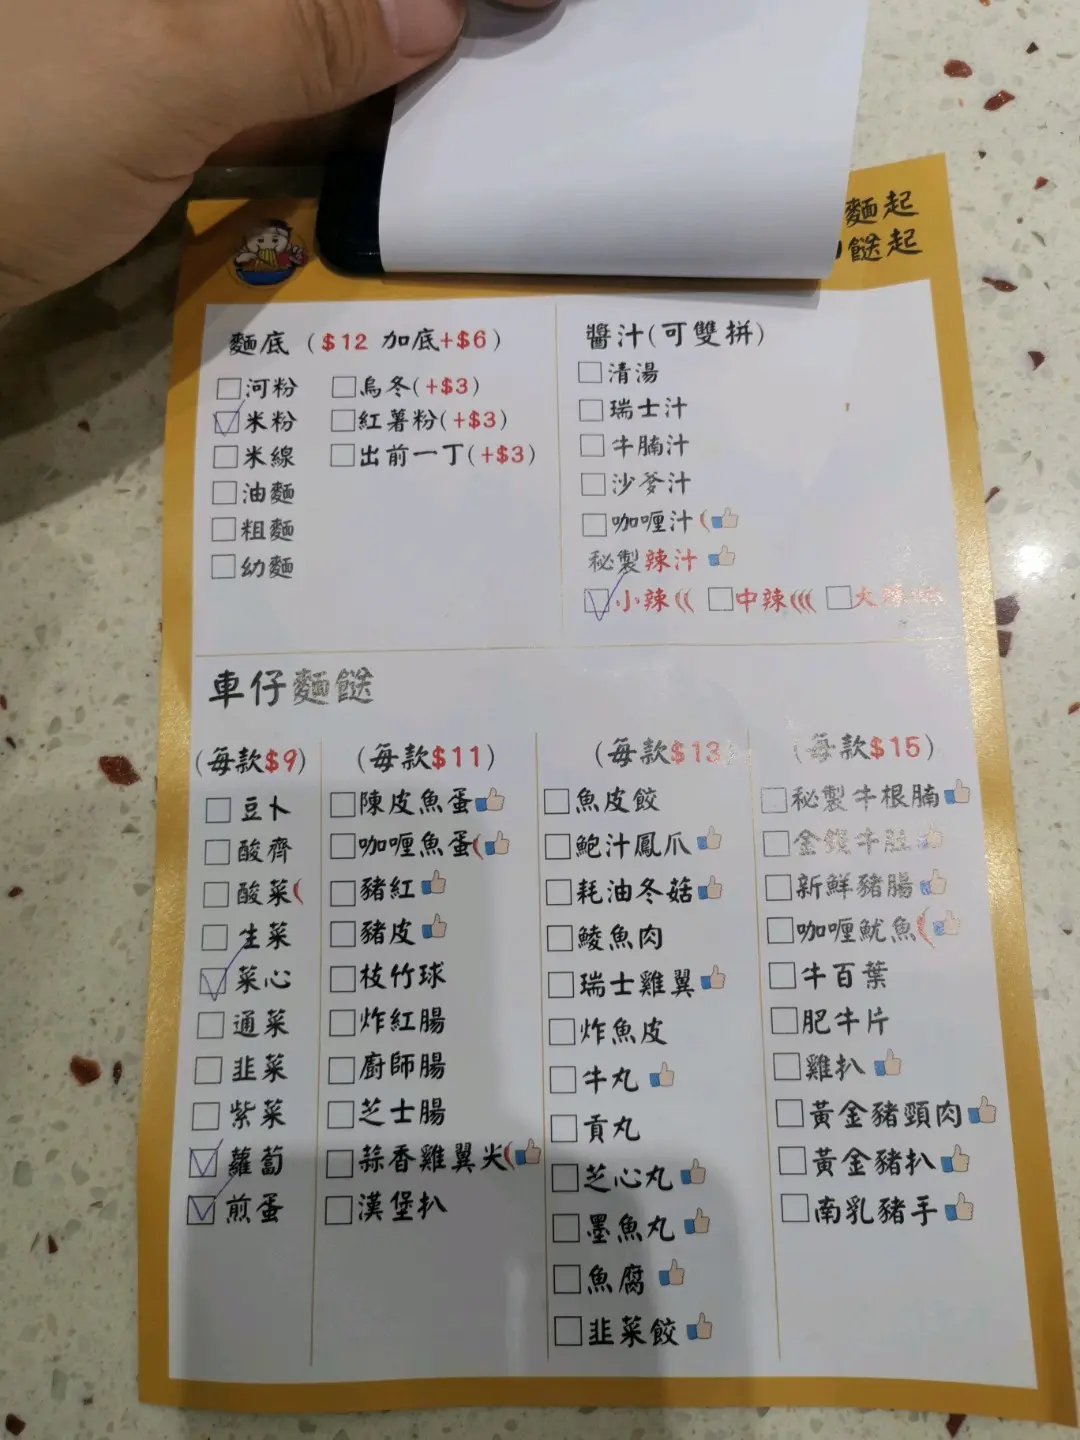 麵起
餸起
麵底 ($12 加底+$6)
河粉
米粉
米線
油麵
粗麵
幼麵
烏冬(+$3)
紅薯粉(+$3)
出前一丁(+$3)
醬汁(可雙拼)
清湯
瑞士汁
牛腩汁
沙爹汁
咖喱汁
秘製辣汁
小辣 中辣 大辣
車仔麵餸
(每款$9)
豆卜
酸齋
酸菜
生菜
菜心
通菜
韭菜
紫菜
蘿蔔
煎蛋
(每款$11)
陳皮魚蛋
咖喱魚蛋
豬紅
豬皮
枝竹球
炸紅腸
廚師腸
芝士腸
蒜香雞翼尖
漢堡扒
(每款$13)
魚皮餃
鮑汁鳳爪
耗油冬菇
鯪魚肉
瑞士雞翼
炸魚皮
牛丸
貢丸
芝心丸
墨魚丸
魚腐
韭菜餃
(每款$15)
秘製牛根腩
金錢牛肚
新鮮豬腸
咖喱魷魚
牛百葉
肥牛片
雞扒
黃金豬頸肉
黃金豬扒
南乳豬手